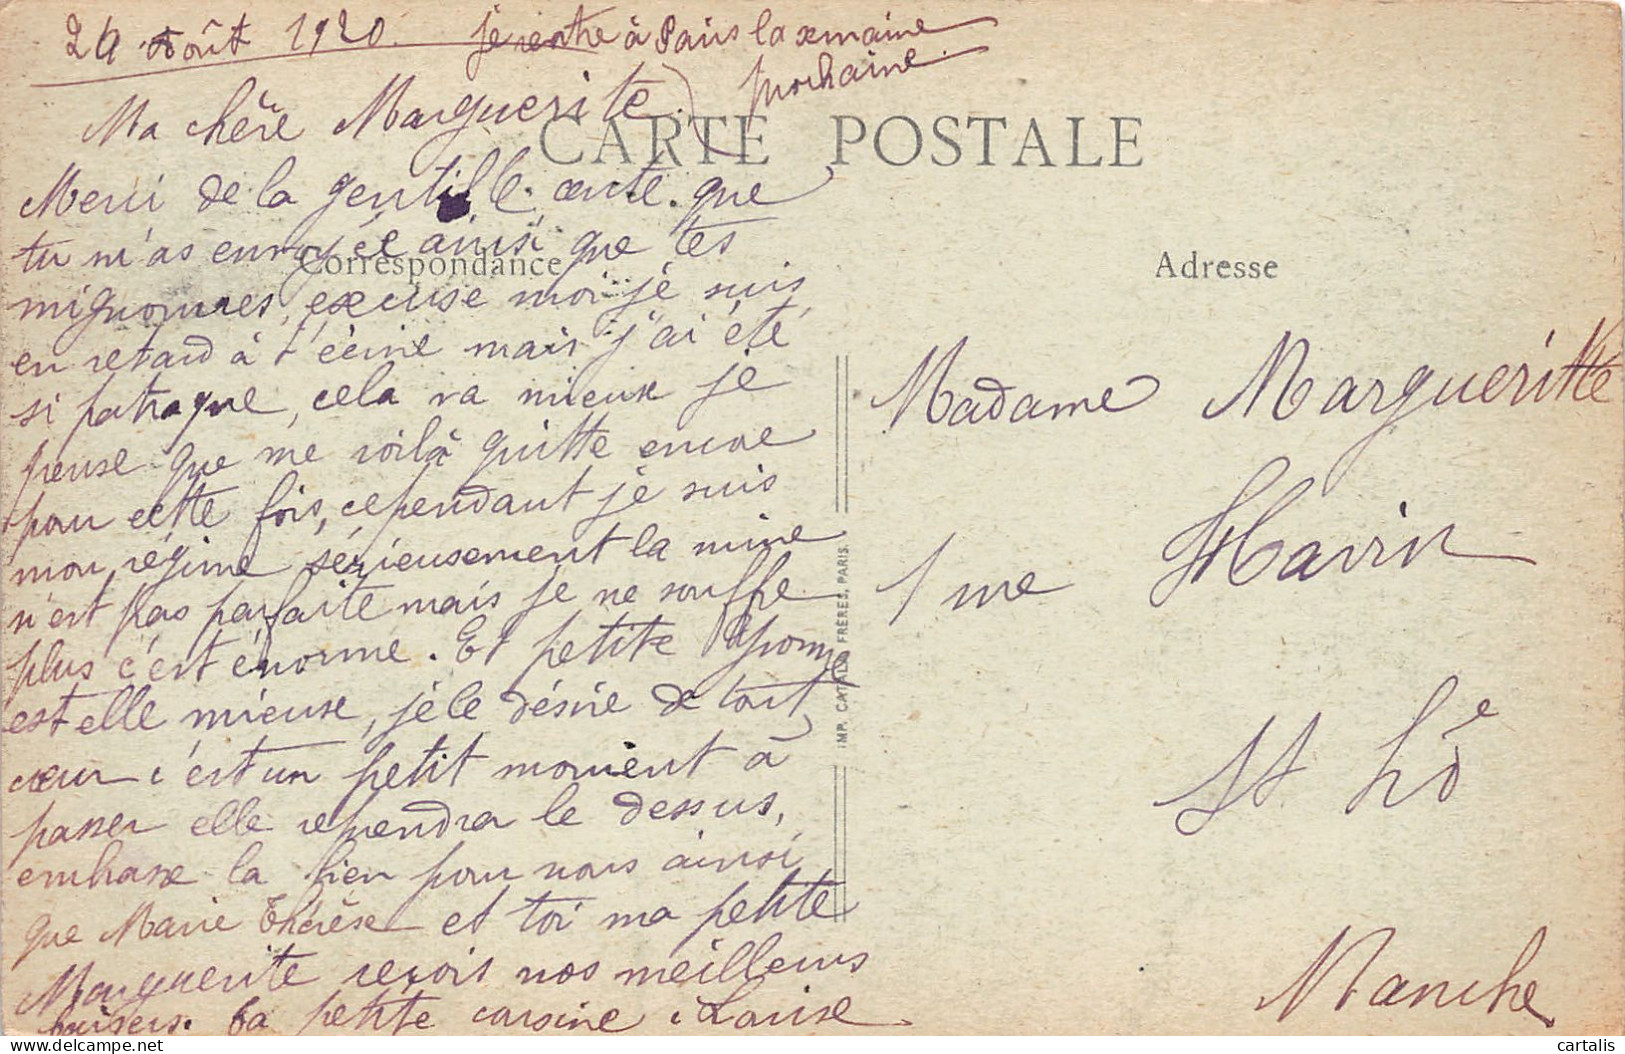 24 Août 1920. je rentre à Paris la semaine
prochaine.
Ma chère Marguerite
CARTE POSTALE
Merci de la gentille carte que
tu m'as envoyée ainsi que tes
Correspondance
mignonnes, excuse moi je suis
en retard à t'écrire mais j'ai été
si patraque, cela va mieux je
pense que me voilà quitte encore
pour cette fois, cependant je suis
mon régime sérieusement la mine
n'est pas parfaite mais je ne souffre
plus c'est énorme. Et petite Yvonne
est elle mieux, je le désire de tout
cœur c'est un petit moment à
passer elle reprendra le dessus,
embrasse la bien pour nous ainsi
que Marie Thérèse et toi ma petite
Marguerite reçois nos meilleurs
baisers. ta petite cousine Louise
IMP. CATALA FRÈRES, PARIS.
Adresse
Madame Marguerite
1 rue Havin
St Lô
Manche
cartalis